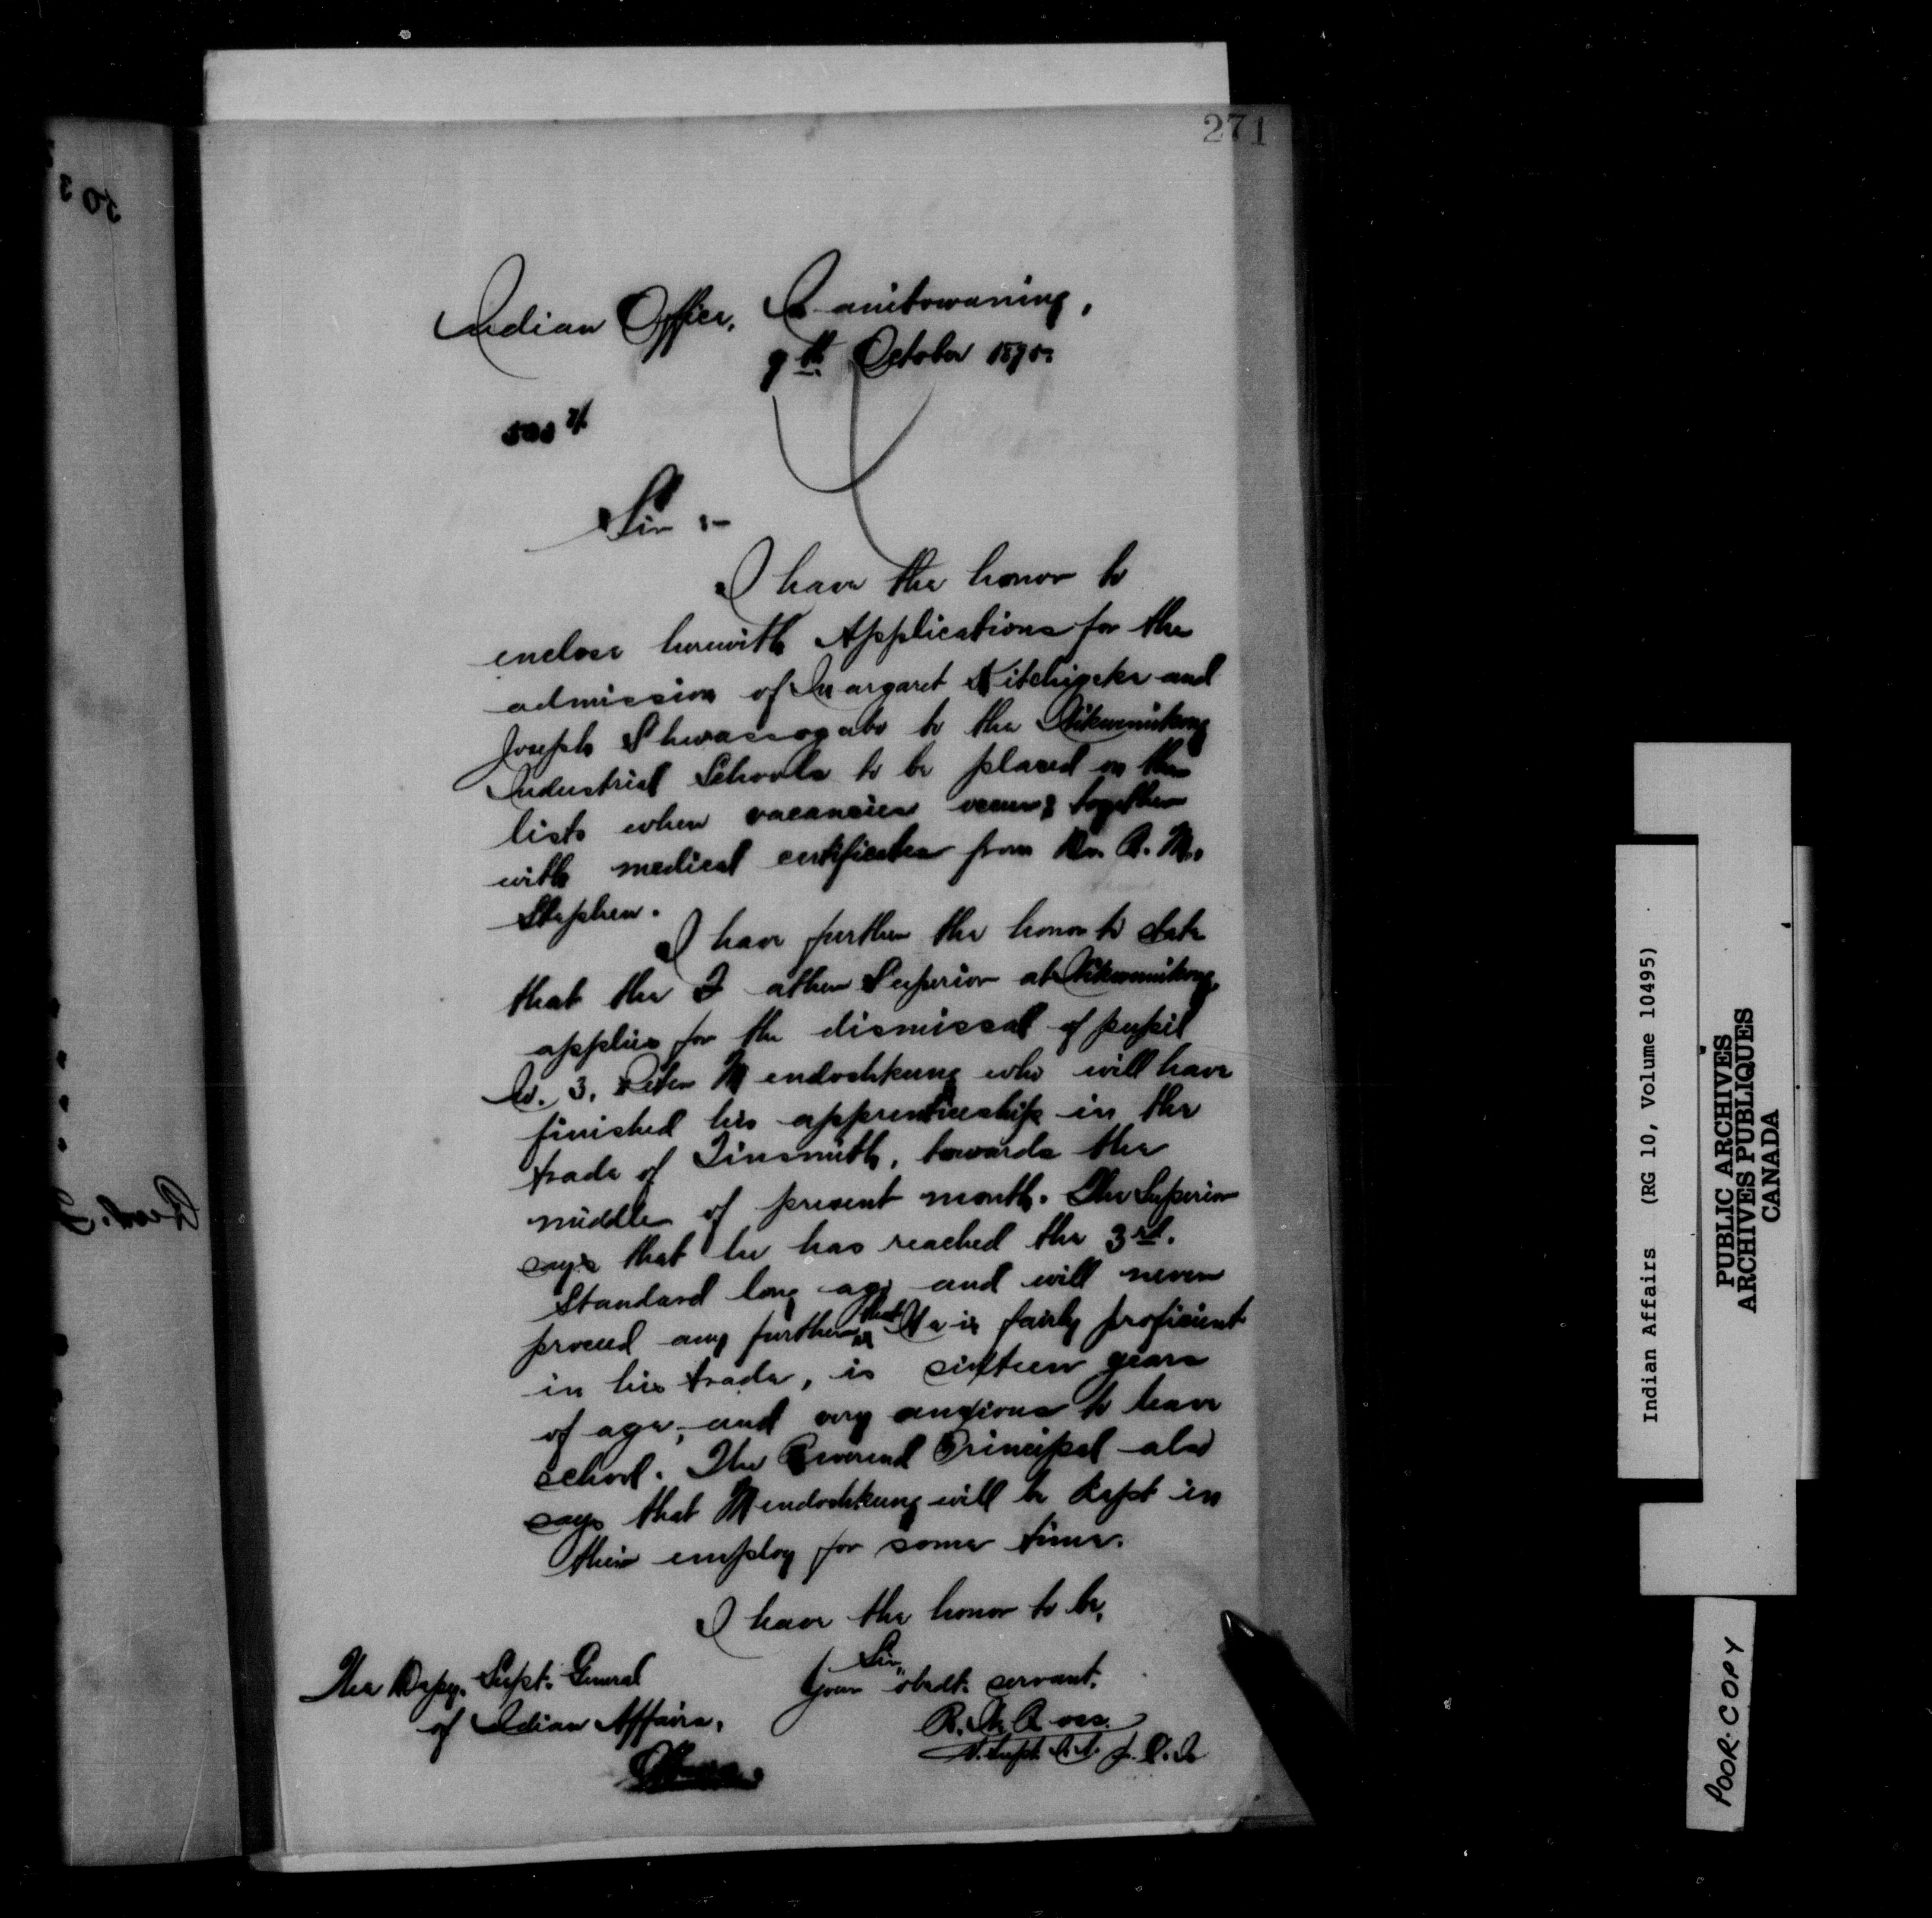 271
Indian Office, Manitowaning,
9th October 1895.
Sir :-
I have the honor to
enclose herewith Applications for the
admission of Margaret Kitchigeke and
Joseph Shwassogabo to the Wikwemikong
Industrial Schools to be placed on the
lists when vacancies occur; together
with medical certificates from Dr. R. M.
Stephen.
I have further the honor to state
that the Father Superior at Wikwemikong,
applies for the dismissal of pupil
No. 3, Peter Mendoshkung who will have
finished his apprenticeship in the
trade of Tinsmith, towards the
middle of present month. The Superior
says that he has reached the 3rd.
Standard long ago and will never
proceed any further, that He is fairly proficient
in his trade, is sixteen years
of age, and very anxious to leave
school. The Reverend Principal also
says that Mendoshkung will be kept in
their employ for some time.
I have the honor to be,
Sir,
Your obedt. servant,
The Depy. Supt. General
of Indian Affairs,
Ottawa.
B. W. Ross.
Indian Affairs (RG 10, Volume 10495)
PUBLIC ARCHIVES
ARCHIVES PUBLIQUES
CANADA
POOR COPY